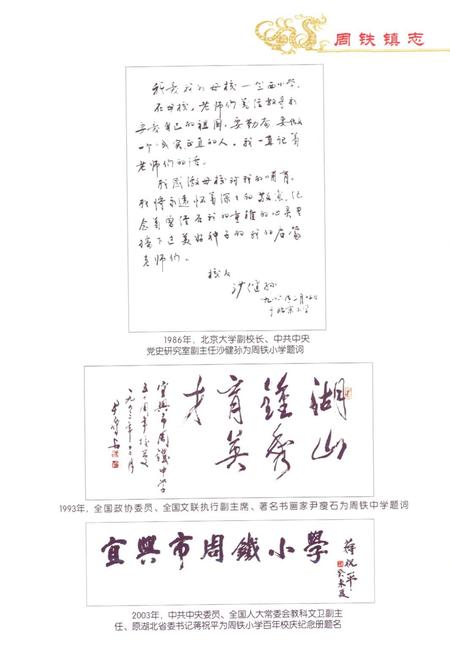 周铁镇志
我爱我的母校一竺西小学。
在母校,老师们关注教导我
要爱自己的祖国,要勤奋,要做
一个诚实正直的人,我一直记着
老师们的话。
我感激母校对我的哺育。
我将永远怀着深深的敬意,纪
念着曾经在我的童稚的心灵里
播下过美好种子的我的启蒙
老师们。
校友
沙健孙
1986年,北京大学副校长、中共中央
党史研究室副主任沙健孙为周铁小学题词
湖山
鐘秀
育英
才
宜興市周鐵中学
五十周年校庆
一九九三年
1993年,全国政协委员、全国文联执行副主席、著名书画家尹瘦石为周铁中学题词
宜興市周鐵小學
蒋祝平
癸未夏
2003年,中共中央委员、全国人大常委会教科文卫副主
任、原湖北省委书记蒋祝平为周铁小学百年校庆纪念册题名